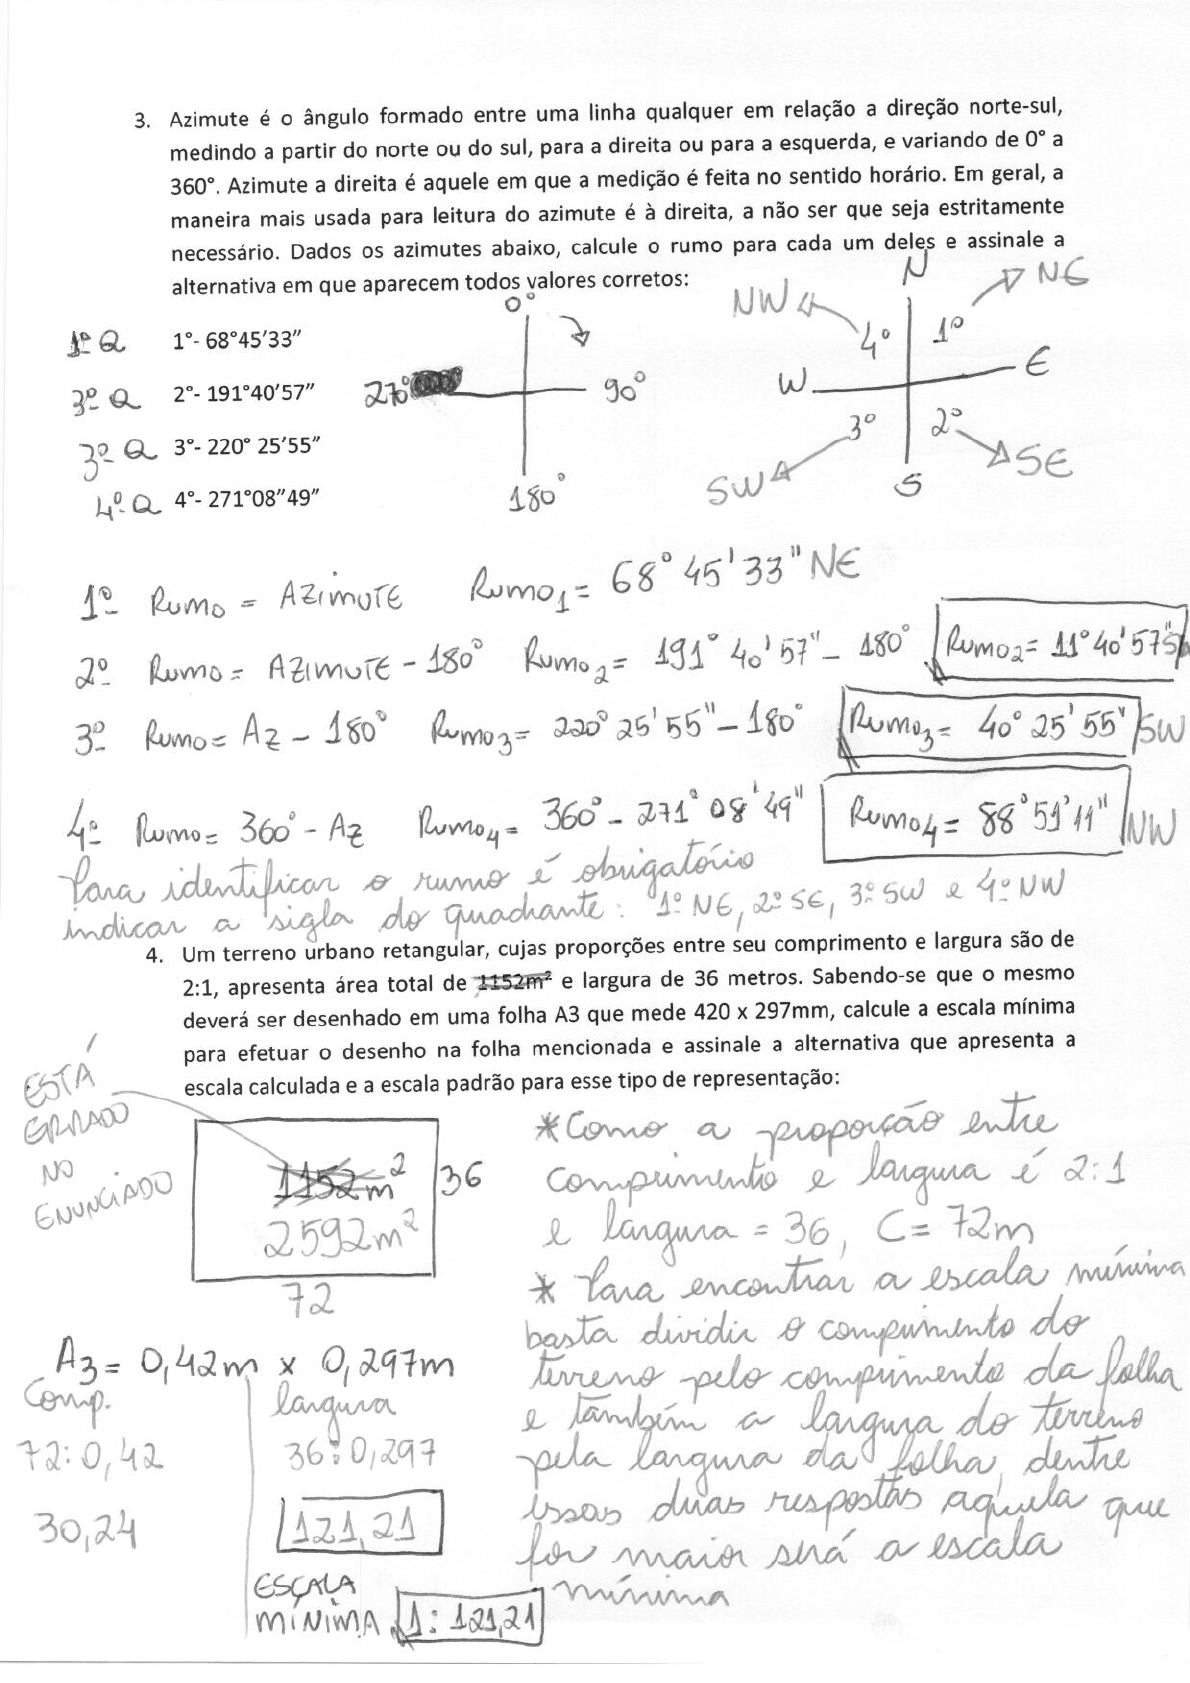 3. Azimute é o ângulo formado entre uma linha qualquer em relação a direção norte-sul,
medindo a partir do norte ou do sul, para a direita ou para a esquerda, e variando de 0° a
360°. Azimute a direita é aquele em que a medição é feita no sentido horário. Em geral, a
maneira mais usada para leitura do azimute é à direita, a não ser que seja estritamente
necessário. Dados os azimutes abaixo, calcule o rumo para cada um deles e assinale a
alternativa em que aparecem todos valores corretos:
1º Q 1°- 68°45'33"
3º Q 2°- 191°40'57"
3º Q 3°- 220° 25'55"
4º Q 4°- 271°08"49"
0°
90°
180°
270°
N
NE
NW
4º 1º
W E
3º 2º
SW SE
S
1º Rumo = AZIMUTE Rumo1 = 68° 45' 33" NE
2º Rumo = AZIMUTE - 180° Rumo2 = 191° 40' 57" - 180° Rumo2 = 11° 40' 57"
3º Rumo = Az - 180° Rumo3 = 220° 25' 55" - 180° Rumo3 = 40° 25' 55" SW
4º Rumo = 360° - Az Rumo4 = 360° - 271° 08' 49" Rumo4 = 88° 51' 11" NW
Para identificar o rumo é obrigatório
indicar a sigla do quadrante: 1º NE, 2º SE, 3º SW e 4º NW
4. Um terreno urbano retangular, cujas proporções entre seu comprimento e largura são de
2:1, apresenta área total de 1152m² e largura de 36 metros. Sabendo-se que o mesmo
deverá ser desenhado em uma folha A3 que mede 420 x 297mm, calcule a escala mínima
para efetuar o desenho na folha mencionada e assinale a alternativa que apresenta a
escala calculada e a escala padrão para esse tipo de representação:
ESTÁ
ERRADO
NO
ENUNCIADO
1152m² 36
2592m²
72
* Como a proporção entre
comprimento e largura é 2:1
e largura = 36, C = 72m
* Para encontrar a escala mínima
basta dividir o comprimento do
terreno pelo comprimento da folha
e também a largura do terreno
pela largura da folha, dentre
essas duas respostas aquela que
for maior será a escala
mínima
A3 = 0,42m x 0,297m
Comp. largura
72:0,42 36:0,297
30,24 121,21
ESCALA
MÍNIMA 1:121,21